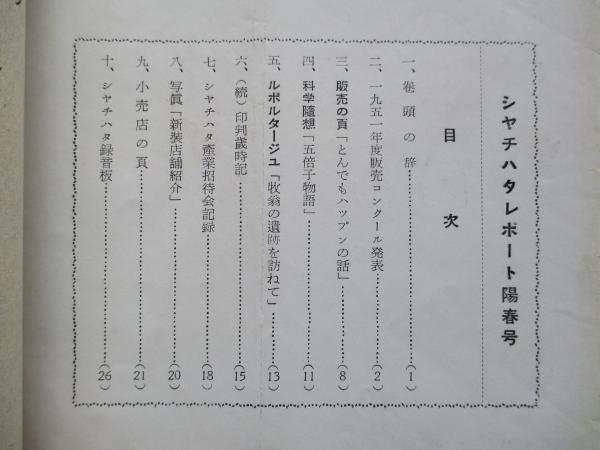 シヤチハタレポート陽春号
目次
一、巻頭の辞……(1)
二、一九五一年度販売コンクール発表……(2)
三、販売の頁「とんでもハップンの話」……(8)
四、科学隨想「五倍子物語」……(11)
五、ルポルタージユ「牧翁の遺跡を訪ねて」……(13)
六、(続)印判歳時記……(15)
七、シヤチハタ産業招待会記録……(18)
八、写眞「新装店舗紹介」……(20)
九、小売店の頁……(21)
十、シヤチハタ録音板……(26)